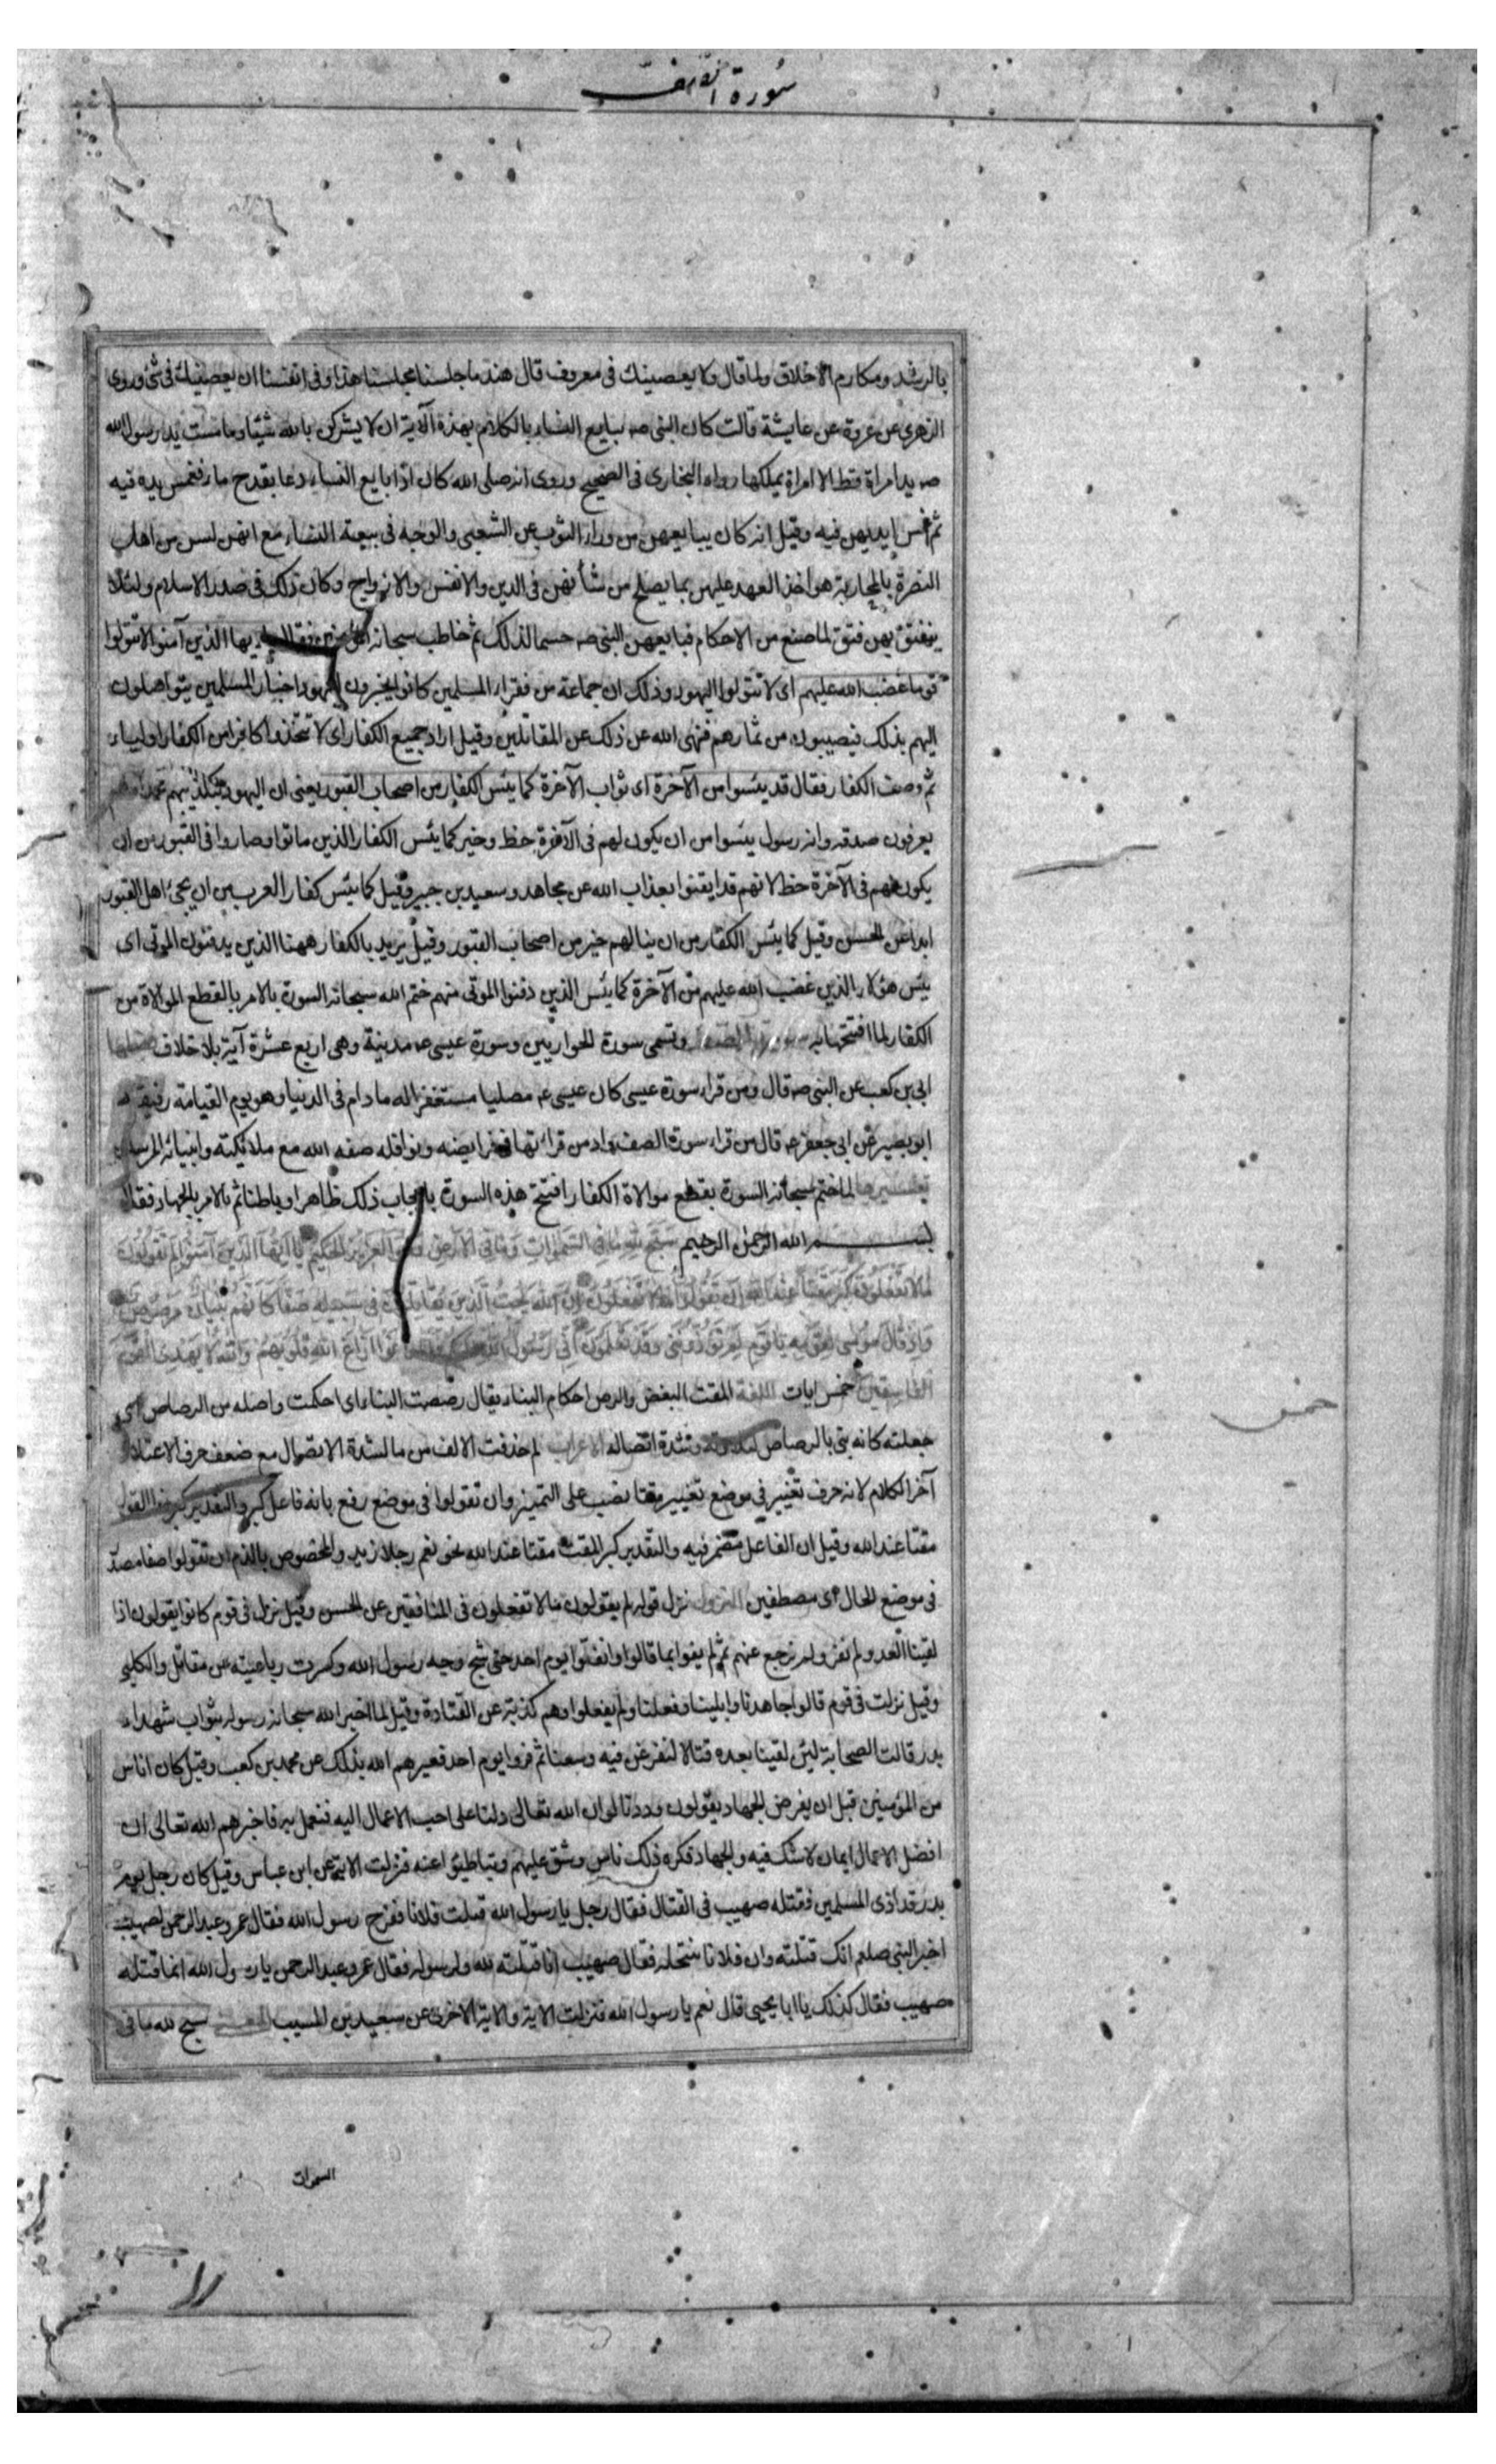 سورة الصف
بالرشد ومكارم الاخلاق ولما قال ولا يعصينك فى معروف قال هند ما جلسنا مجلسنا هذا وفى انفسنا ان يعصينك فى شئ وروى
الزهرى عن عروة عن عايشة قالت كان النبى صـ يبايع النساء بالكلام بهذه الآية ان لا يشركن بالله شيئا وما مست يد رسول الله
صـ يد امراة قط الا امراة يملكها رواه البخارى فى الصحيح وروى انه صلى الله كان اذا بايع النساء دعا بقدح ماء فغمس يده فيه
ثم غمس ايديهن فيه وقيل انه كان يبايعهن من وراء الثوب عن الشعبى والوجه فى بيعة النساء مع انهن لسن من اهل
النصرة بالمحاربة هو اخذ العهد عليهن بما يصلح من شأنهن فى الدين والانفس والازواج وكان ذلك فى صدر الاسلام ولئلا
ينفتق بهن فتق لما صنع من الاحكام فبايعهن النبى صـ حسما لذلك ثم خاطب سبحانه المؤمنين فقال يا ايها الذين آمنوا لا تتولوا
قوما غضب الله عليهم اى لا تتولوا اليهود وذلك ان جماعة من فقراء المسلمين كانوا يخبرون اليهود اخبار المسلمين يتواصلون
اليهم بذلك فيصيبون من ثمارهم فنهى الله عن ذلك عن المقاتلين وقيل اراد جميع الكفار اى لا تتخذوا كافرا من الكفار اولياء
ثم وصف الكفار فقال قد يئسوا من الآخرة اى ثواب الآخرة كما يئس الكفار من اصحاب القبور يعنى ان اليهود بتكذيبهم محمدا وهم
يعرفون صدقه وانه رسول يئسوا من ان يكون لهم فى الآخرة حظ وخير كما يئس الكفار الذين ماتوا وصاروا فى القبور من ان
يكون لهم فى الآخرة حظ لانهم قد ايقنوا بعذاب الله عن مجاهد وسعيد بن جبير وقيل كما يئس كفار العرب من ان يحيى اهل القبور
ابدا عن الحسن وقيل كما يئس الكفار من ان ينالهم خير من اصحاب القبور وقيل يريد بالكفار ههنا الذين يدفنون الموتى اى
يئس هؤلاء الذين غضب الله عليهم من الآخرة كما يئس الذين دفنوا الموتى منهم ختم الله سبحانه السورة بالامر بالقطع الموالاة من
الكفار لما افتتحها به سورة الصف وتسمى سورة الحواريين وسورة عيسى ع مدنية وهى اربع عشرة آية بلا خلاف فضلها
ابى بن كعب عن النبى صـ قال ومن قراء سورة عيسى كان عيسى ع مصليا مستغفرا له ما دام فى الدنيا وهو يوم القيامة رفيقه
ابو بصير عن ابى جعفر ع قال من قراء سورة الصف وادمن قراءتها فى فرايضه ونوافله صفه الله مع ملائكته وانبيائه المرسلين
تفسيرها لما ختم سبحانه السورة بقطع موالاة الكفار افتتح هذه السورة بايجاب ذلك ظاهرا وباطنا ثم بالامر بالجهاد فقال
بسم الله الرحمن الرحيم سَبَّحَ لِلَّهِ مَا فِى السَّمٰوَاتِ وَمَا فِى الْاَرْضِ وَهُوَ الْعَزِيزُ الْحَكِيمُ يَا اَيُّهَا الَّذِينَ آمَنُوا لِمَ تَقُولُونَ
مَا لَا تَفْعَلُونَ كَبُرَ مَقْتًا عِنْدَ اللهِ اَنْ تَقُولُوا مَا لَا تَفْعَلُونَ اِنَّ اللهَ يُحِبُّ الَّذِينَ يُقَاتِلُونَ فِى سَبِيلِهِ صَفًّا كَاَنَّهُمْ بُنْيَانٌ مَرْصُوصٌ
وَاِذْ قَالَ مُوسٰى لِقَوْمِهِ يَا قَوْمِ لِمَ تُؤْذُونَنِى وَقَدْ تَعْلَمُونَ اَنِّى رَسُولُ اللهِ اِلَيْكُمْ فَلَمَّا زَاغُوا اَزَاغَ اللهُ قُلُوبَهُمْ وَاللهُ لَا يَهْدِى الْقَوْمَ
الْفَاسِقِينَ خمس ايات اللغة المقت البغض والرص احكام البناء يقال رصصت البناء اى احكمت واصله من الرصاص اى
جعلته كانه بنى بالرصاص لتلاؤمه وشدة اتصاله الاعراب لم حذفت الالف من ما لشدة الاتصال مع ضعف حرف الاعتلال
آخر الكلام لانه حرف تغيير فى موضع تغيير مقتا نصب على التميز وان تقولوا فى موضع رفع بانه فاعل كبر والتقدير كبر هذا القول
مقتا عند الله وقيل ان الفاعل مضمر فيه والتقدير كبر المقت مقتا عند الله نحو نعم رجلا زيد والمخصوص بالذم ان تقولوا صفا مصدر
فى موضع الحال اى مصطفين النزول نزل قوله لم يقولون ما لا تفعلون فى المنافقين عن الحسن وقيل نزل فى قوم كانوا يقولون اذا
لقينا العدو لم نفر ولم نرجع عنهم ثم لم يفوا بما قالوا وانفلوا يوم احد حتى شج وجه رسول الله وكسرت رباعيته عن مقاتل والكلبى
وقيل نزلت فى قوم قالوا جاهدنا وابلينا وفعلنا ولم يفعلوا وهم كذبة عن القتادة وقيل لما اخبر الله سبحانه رسوله بثواب شهداء
بدر قالت الصحابة لئن لقينا بعده قتالا لنفرغن فيه وسعنا ثم فروا يوم احد فعيرهم الله بذلك عن محمد بن كعب وقيل كان اناس
من المؤمنين قبل ان يفرض الجهاد يقولون وددنا لو ان الله تعالى دلنا على احب الاعمال اليه فنعمل به فاخبرهم الله تعالى ان
افضل الاعمال ايمان لا شك فيه والجهاد فكره ذلك ناس وشق عليهم وتباطئوا عنه فنزلت الاية عن ابن عباس وقيل كان رجل يوم
بدر قد اذى المسلمين فقتله صهيب فى القتال فقال رجل يا رسول الله قتلت فلانا ففرح رسول الله فقال عمر وعبد الرحمن لصهيب
اخبر النبى صلعم انك قتلته وان فلانا ينتحله فقال صهيب انا قتلته لله ولرسوله فقال عمر وعبد الرحمن يا رسول الله انما قتله
صهيب فقال كذلك يا ابا يحيى قال نعم يا رسول الله فنزلت الاية والاية الاخرى عن سعيد بن المسيب المعنى سبح لله ما فى
السموات
خمس